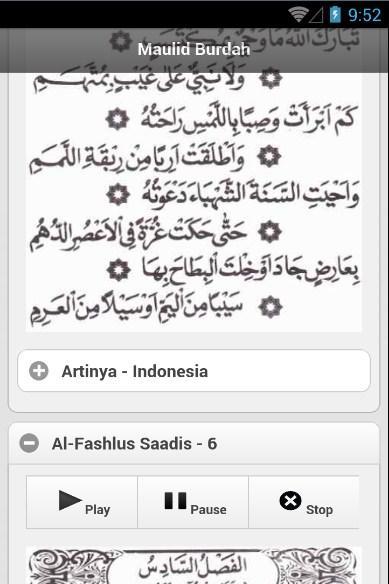 9:52
تَبَارَكَ اللهُ مَا وَحْيٌ بِمُكْتَسَبٍ
Maulid Burdah
وَلَا نَبِيٌّ عَلَى غَيْبٍ بِمُتَّهَمِ
كَمْ اَبْرَأَتْ وَصِبًا بِاللَّمْسِ رَاحَتُهُ
وَاَطْلَقَتْ اَرِبًا مِنْ رِبْقَةِ اللَّمَمِ
وَاَحْيَتِ السَّنَةَ الشَّهْبَاءَ دَعْوَتُهُ
حَتَّى حَكَتْ غُرَّةً فِي الْاَعْصُرِ الدُّهُمِ
بِعَارِضٍ جَادَ اَوْ خِلْتَ الْبِطَاحَ بِهَا
سَيْبًا مِنَ الْيَمِّ اَوْ سَيْلًا مِنَ الْعَرِمِ
Artinya - Indonesia
Al-Fashlus Saadis - 6
Play Pause Stop
الفَصْلُ السَّادِسُ